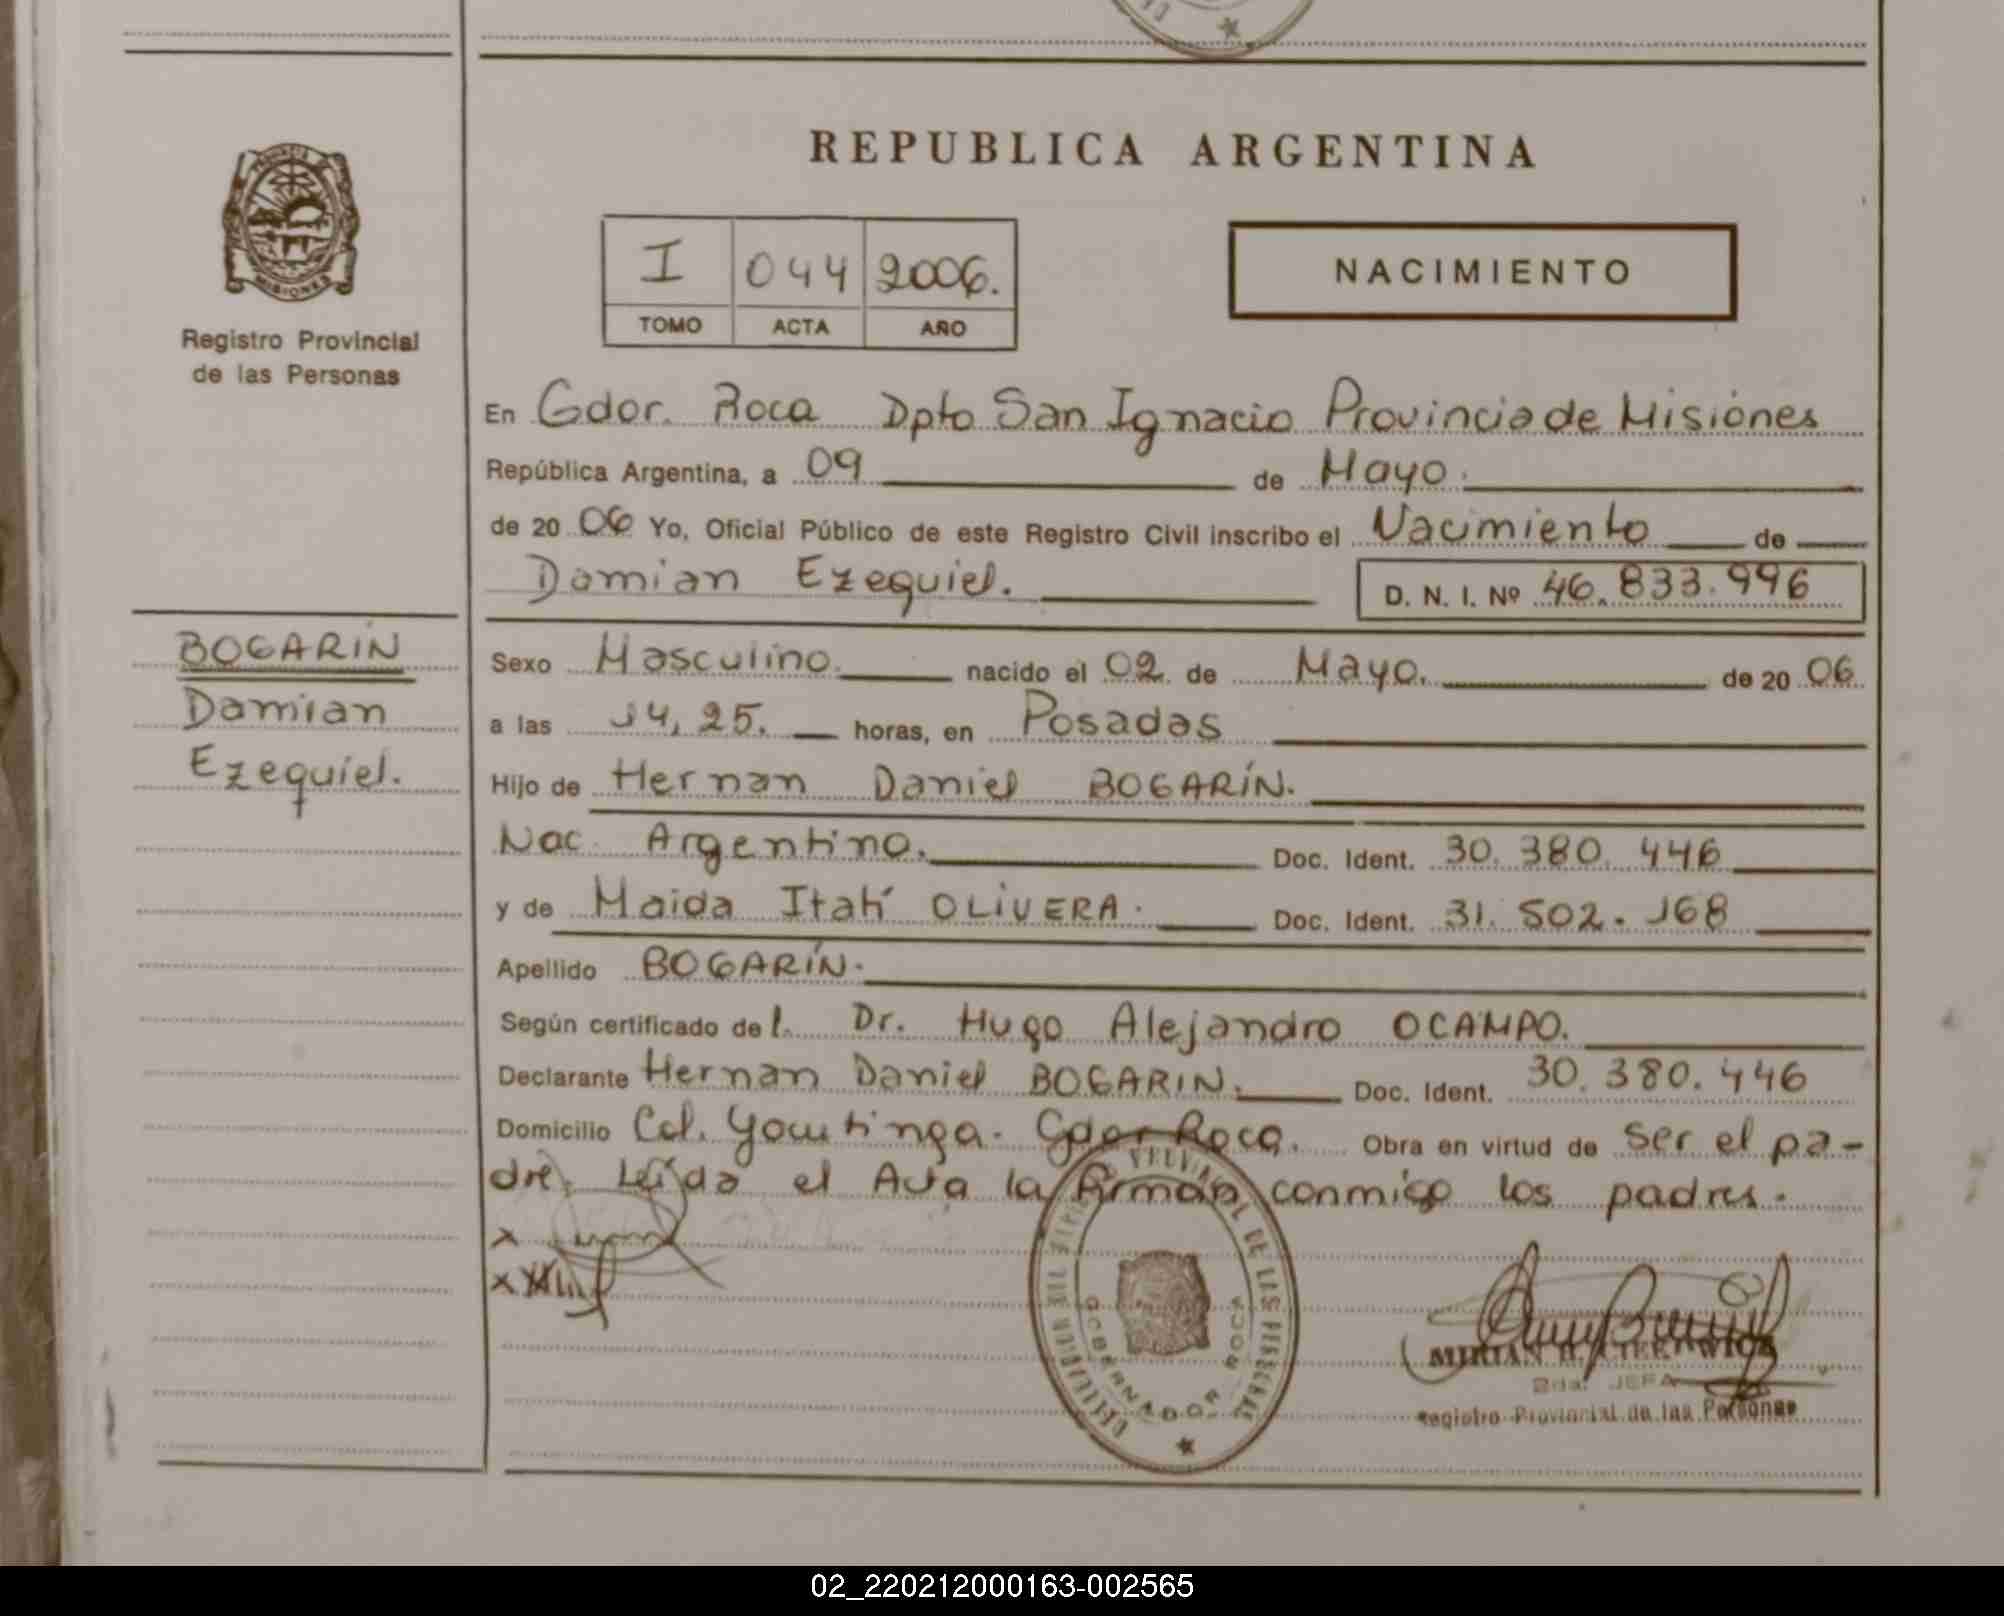 REPUBLICA ARGENTINA
PROVINCIA DE
MISIONES
Registro Provincial
de las Personas
I 044 2006.
TOMO ACTA AÑO
NACIMIENTO
En Gdor. Roca Dpto San Ignacio Provincia de Misiones
República Argentina, a 09 de Mayo.
de 20 06 Yo, Oficial Público de este Registro Civil inscribo el Nacimiento de
Damian Ezequiel. D. N. I. Nº 46.833.996
BOGARIN
Damian
Ezequiel.
Sexo Masculino. nacido el 02 de Mayo. de 20 06
a las 14,25. horas, en Posadas
Hijo de Hernan Daniel BOGARÍN.
Nac. Argentino. Doc. Ident. 30.380.446
y de Maida Itatí OLIVERA. Doc. Ident. 31.502.168
Apellido BOGARÍN.
Según certificado del. Dr. Hugo Alejandro OCAMPO.
Declarante Hernan Daniel BOGARIN. Doc. Ident. 30.380.446
Domicilio Col. Yacutinga. Gdor Roca. Obra en virtud de ser el pa-
dre. Leída el Acta la firman conmigo los padres.
x
x
PROVINCIAL DE LAS PERSONAS
GOBERNADOR ROCA
MIRIAN
2da. JEFA
Registro Provincial de las Personas
02_220212000163-002565